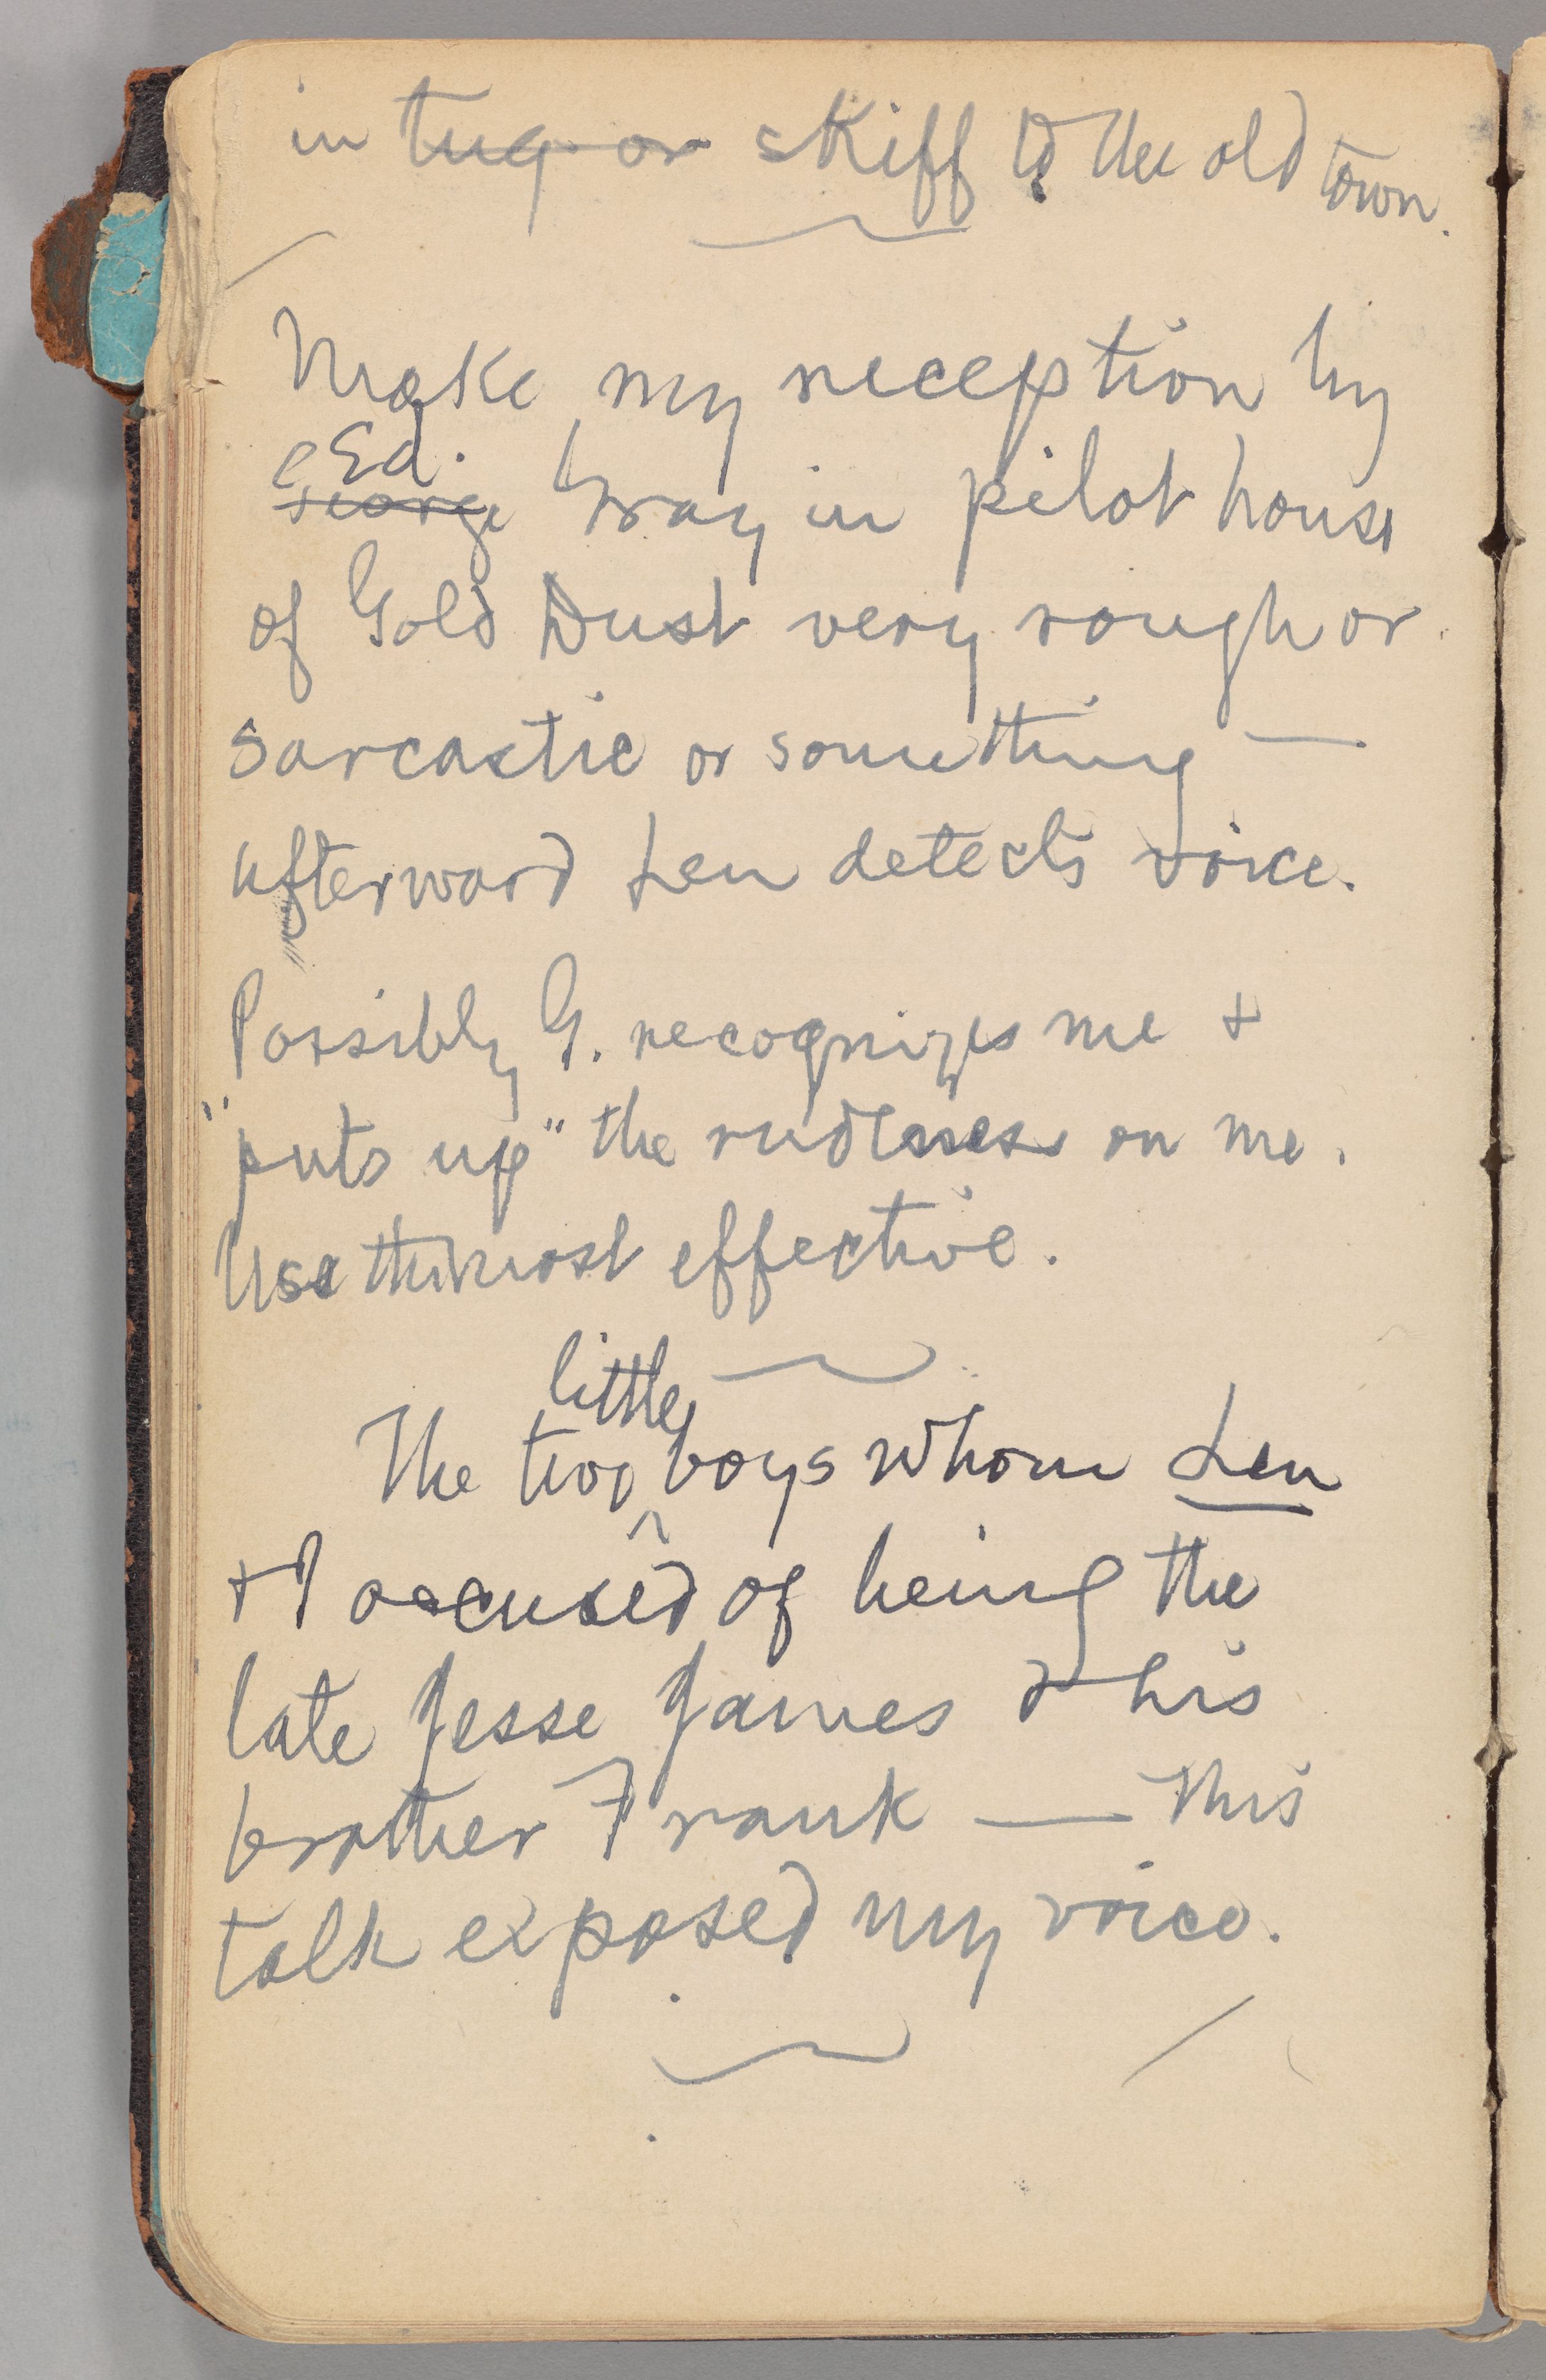 in tug or skiff to the old town.
Make my reception by
Ed.
George Gray in pilot house
of Gold Dust very rough or
sarcastic or something —
afterward Lem detects voice.
Possibly G. recognizes me +
"puts up" the rudeness on me.
Use the most effective.
little
The two ^ boys whom Lem
+ I accused of being the
late Jesse James & his
brother Frank — This
talk exposed my voice.